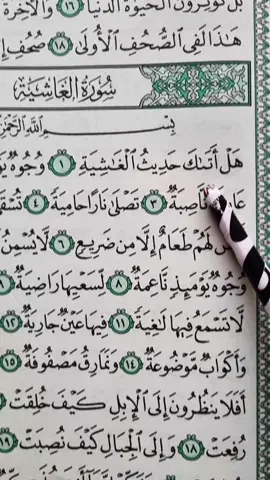 بَلْ تُؤْثِرُونَ الْحَيَوٰةَ الدُّنْيَا ١٦ وَالْآخِرَةُ
هَٰذَا لَفِي الصُّحُفِ الْأُولَىٰ ١٨ صُحُفِ
سُورَةُ الْغَاشِيَةِ
بِسْمِ اللَّهِ الرَّحْمَٰنِ
هَلْ أَتَىٰكَ حَدِيثُ الْغَٰشِيَةِ ١ وُجُوهٌ
نَّاصِبَةٌ ٣ تَصْلَىٰ نَارًا حَامِيَةً ٤
لَهُمْ طَعَامٌ إِلَّا مِن ضَرِيعٍ ٦ لَّا يُسْمِنُ
وُجُوهٌ يَوْمَئِذٍ نَّاعِمَةٌ ٨ لِّسَعْيِهَا رَاضِيَةٌ ٩
لَّا تَسْمَعُ فِيهَا لَٰغِيَةً ١١ فِيهَا عَيْنٌ جَارِيَةٌ ١٢
وَأَكْوَابٌ مَّوْضُوعَةٌ ١٤ وَنَمَارِقُ مَصْفُوفَةٌ ١٥
أَفَلَا يَنظُرُونَ إِلَى الْإِبِلِ كَيْفَ خُلِقَتْ
رُفِعَتْ ١٨ وَإِلَى الْجِبَالِ كَيْفَ نُصِبَتْ ١٩